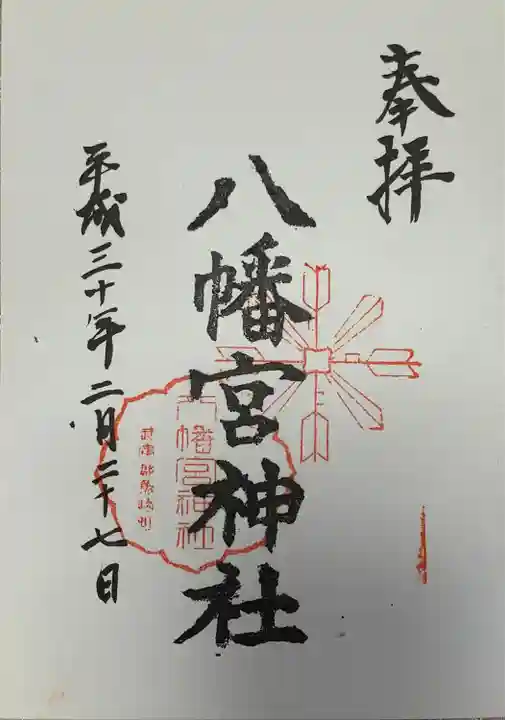 奉拝
八幡宮神社
八幡宮神社
平成三十年二月二十七日